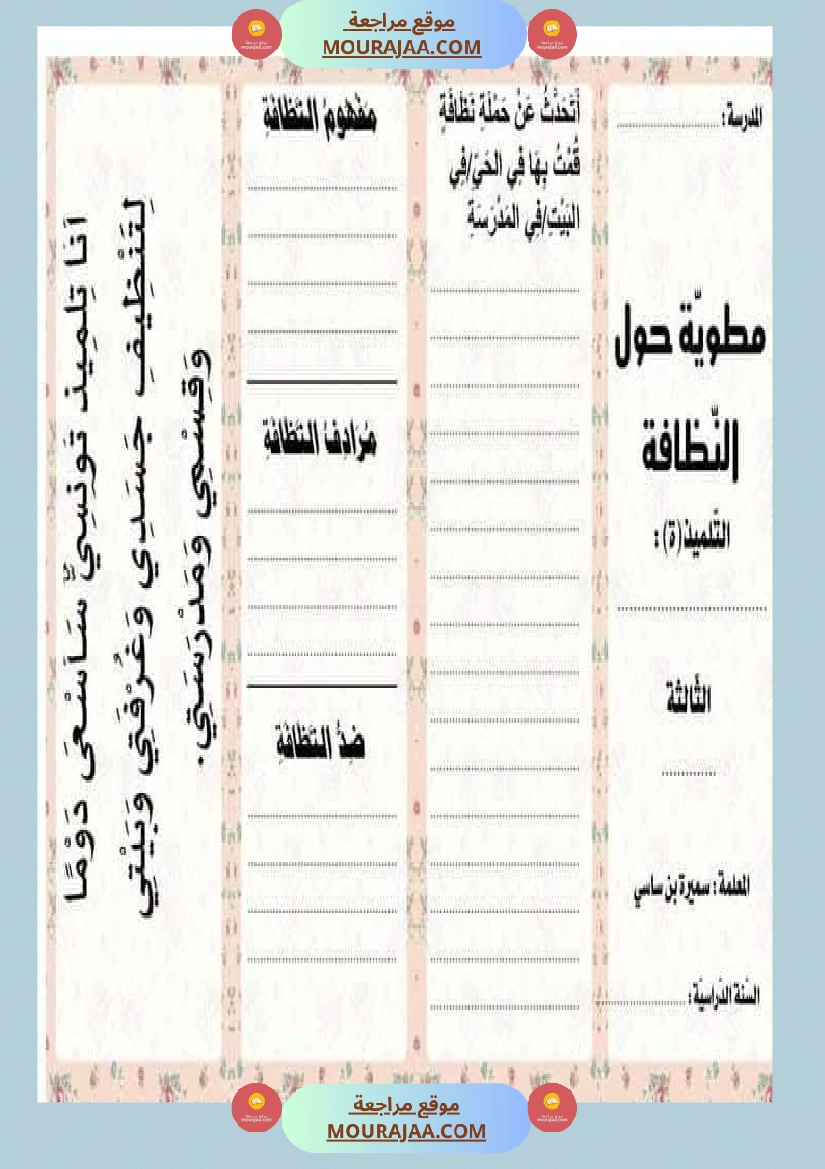 موقع مراجعة
MOURAJAA.COM
المدرسة : ........................
مطويّة حول
النّظافة
التّلميذ(ة) :
........................
الثّالثة
............
المعلمة : سميرة بن ساسي
السّنة الدّراسيّة : ........................
أَتَحَدَّثُ عَنْ حَمْلَةِ نَظَافَةٍ
قُمْتُ بِهَا فِي الْحَيِّ/فِي
البَيْتِ/فِي المَدْرَسَةِ
مَفْهُومُ النَّظَافَةِ
مُرَادِفُ النَّظَافَةِ
ضِدُّ النَّظَافَةِ
أَنَا تِلْمِيذٌ تُونِسِيٌّ سَأَسْعَى دَوْمًا
لِتَنْظِيفِ جَسَدِي وَغُرْفَتِي وَبَيْتِي
وَقِسْمِي وَمَدْرَسَتِي.
موقع مراجعة
MOURAJAA.COM